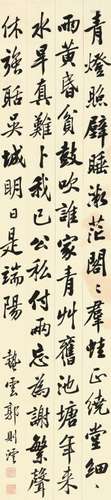 青燈照壁睡微茫閣〻羣蛙正繞堂細
雨黃昏貧鼓吹誰家青艸舊池塘年來
水旱真難卜我已公私付兩忘為謝繁聲
休強聒吳城明日是端陽
蟄雲郭則澐